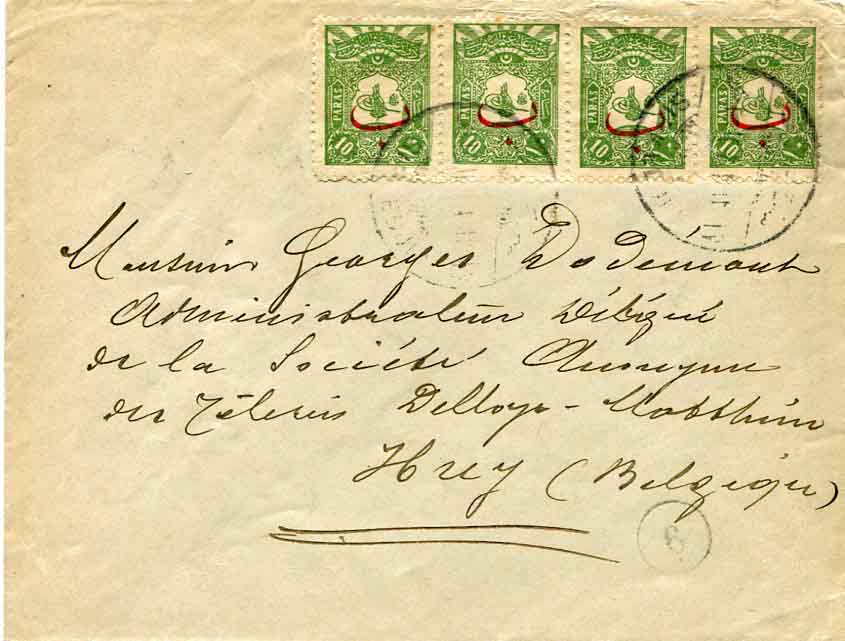 PARAS 10 ب PARAS 10 ب PARAS 10 ب PARAS 10 ب
Monsieur Georges Dodémont
Administrateur Délégué
de la Société Anonyme
des Tôleries Delloye-Matthieu
Huy (Belgique)